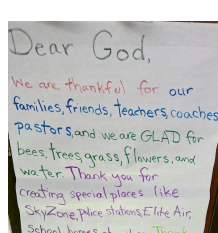 Dear God,
We are thankful for our
families, friends, teachers, coaches
pastors, and we are GLAD for
bees, trees, grass, flowers, and
water. Thank you for
creating special places like
SkyZone, Police stations, Elite Air,
School
Thank